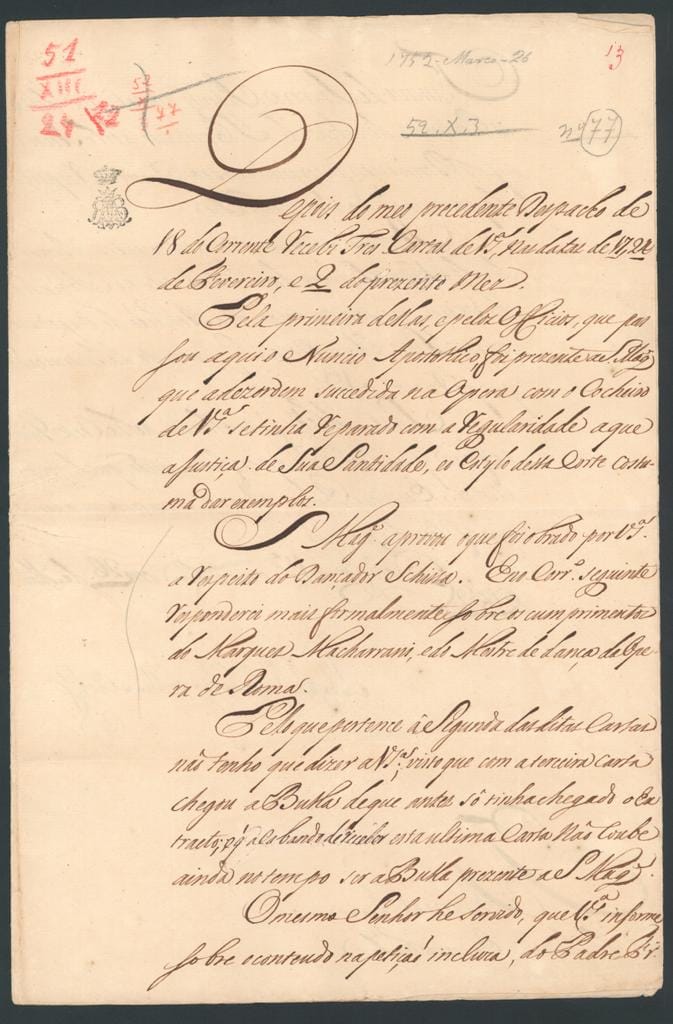 51
XIII
24
22
52
X
77
1
1752 - Março - 26
13
52. X. 3.
nº 77
Depois do meo precedente Despacho de
18 do Corrente recebi Tres Cartas de V.S.ª, nas datas de 17, 24
de Fevereiro, e 2 do prezente Mez.
Pela primeira dellas, e pelos Officios, que pas
sou aqui o Nuncio Apostolico, foi prezente a S. Mag.
que a dezordem succedida na Opera com o Cocheiro
de V.S.ª se tinha reparado com a regularidade a que
a justiça de Sua Santidade, e o Estylo dessa Corte costu-
ma dar exemplos.
S. Mag.e aprovou o que foi obrado por V.S.ª
a respeito do Dançador Schizza. E no Corr.º seguinte
responderei mais formalmente sobre os cumprimentos
do Marques Macharrani, e do Mestre de dança da Ope-
ra de Roma.
Pelo que pertence á Segunda das ditas Cartas
não tenho que dizer a V.S.ª, visto que com a terceira carta
chegou a Bulla de que antes só tinha chegado o Ex
tracto; p.q acabando de receber esta ultima Carta não coube
ainda no tempo ser a Bulla prezente a S. Mag.e
O mesmo Senhor he servido, que V.S.ª informe
sobre o contendo na petição incluza, do Padre Fr.